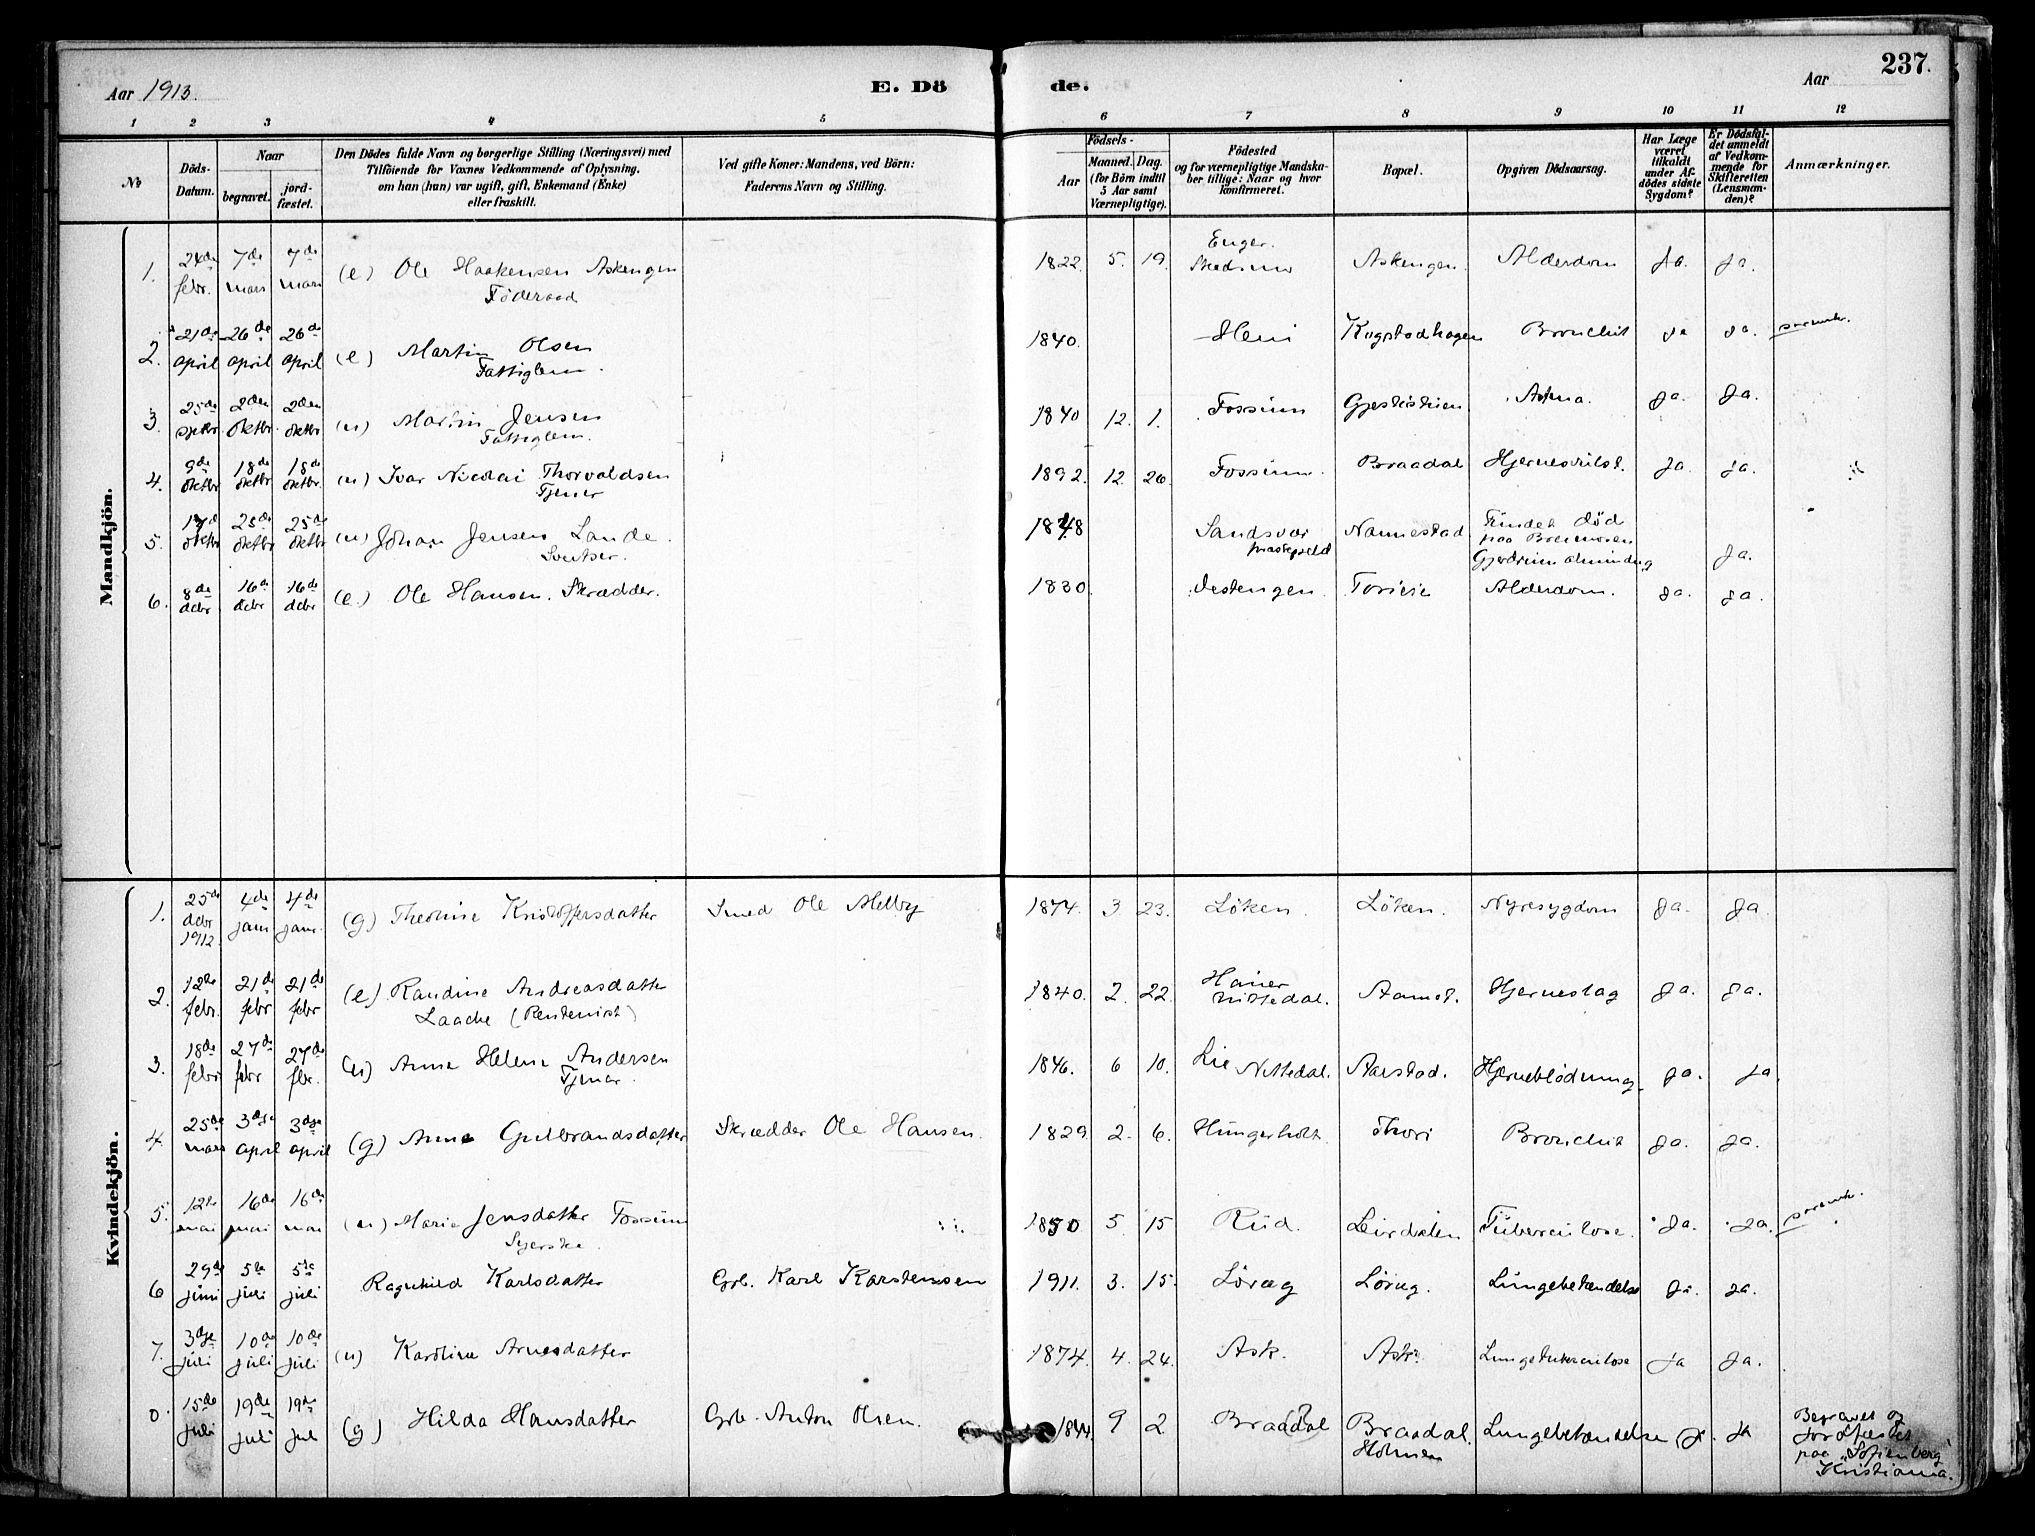 Aar 1913.
E. Döde.
Aar
237.
1 2 3 4 5 6 7 8 9 10 11 12
No
Döds-Datum.
Naar
begravet.
jord-fæstet.
Den Dödes fulde Navn og borgerlige Stilling (Næringsvei) med
Tilföiende for Voxnes Vedkommende af Oplysning,
om han (hun) var ugift, gift, Enkemand (Enke)
eller fraskilt.
Ved gifte Koner: Mandens, ved Börn:
Faderens Navn og Stilling.
Födsels-
Aar
Maaned. Dag.
(for Börn indtil
5 Aar samt
Værnepligtige).
Födested
og for værnepligtige Mandska-
ber tillige: Naar og hvor
konfirmeret.
Bopæl.
Opgiven Dödsaarsag.
Har Læge
været
tilkaldt
under Af-
dödes sidste
Sygdom?
Er Dödsfal-
det anmeldt
af Vedkom-
mende for
Skifteretten
(Lensman-
den)?
Anmærkninger.
Mandkjön.
1. 24de febr. 7de mars 7de mars (e) Ole Haakensen Askengen Föderaad 1822. 5. 19. Enger. Skedsmo Askengen. Alderdom Ja. Ja.
2. 21de april 26de april 26de april (e) Martin Olsen Fattiglem. 1840. Heni Kogstadhagen Bronchit ja ja.
3. 25de septbr 2den oktbr 2den oktbr (u) Martin Jensen Fattiglem. 1840 12. 1. Fossum Astma. Ja. Ja.
4. 9de oktbr 18de oktbr 18de oktbr. (u) Ivar Nicolai Thorvaldsen Tjener 1892. 12. 26. Fossum. Braadal Hjernesvulst. Ja. ja.
5. oktbr 25de oktbr 25de oktbr (u) Johan Jensen Lande. Sveitser. 1848 Sandsvær præstegjeld Nannestad Fundet död paa Gjerdrum almindng Ja.
6. 8de dcbr 16de dcbr 16de dcbr (e.) Ole Hansen. Skrædder. 1830. Vestengen. Alderdom. ja. ja.
Kvindekjön.
1. 25de dcbr 1912. 4de jan 4de jan. (g) Theonise Kristoffersdatter Smed Ole Melby 1874. 3 23. Löken. Löken. Nyresygdom Ja. Ja.
2. 12te febr. 21de febr 21de febr (e). Randine Andreasdatter Laache (Rentenist) 1840. 2. 22. Nittedal. Aamot. Hjerneslag Ja. Ja.
3. 18de febr 27de febr 27de fbr. (u) Anne Helene Andersen Tjener. 1846. 6 10. Lie Nittedal. Aarstad. Hjerneblödning. ja. ja.
4. 25de mars 3dje april 3dje april (g) Anne Gulbrandsdatter Skrædder Ole Hansen. 1829. 2. 6. Hungerholt. Thori Bronchit Ja. Ja.
5. 12te mai 16de mai 16de mai (u) Marie Jensdatter Fossum Syerske. 1850 5. 15 Rud. Leirdalen Tuberculose. Ja. Ja.
6 29de juni 5te juli 5te juli Ragnhild Karlsdatter Grb. Karl Karstensen 1911. 3. 15. Löræg Löræg. Lungebetændelse Ja. ja.
7. 3dje juli 10de juli 10de juli (u) Karoline Arnesdatter 1874. 4. 24. Ask. Ask. Lungetuberculose ja Ja.
15de juli 19de juli 19de jul (g) Hilda Hansdatter Grb. Anton Olsen. 1844. 9 2 Braadal Braadal. Holmen Lungebetændelse ja. ja
Begravet og
jordfæstet
paa „Sofienberg"
Kristiania.